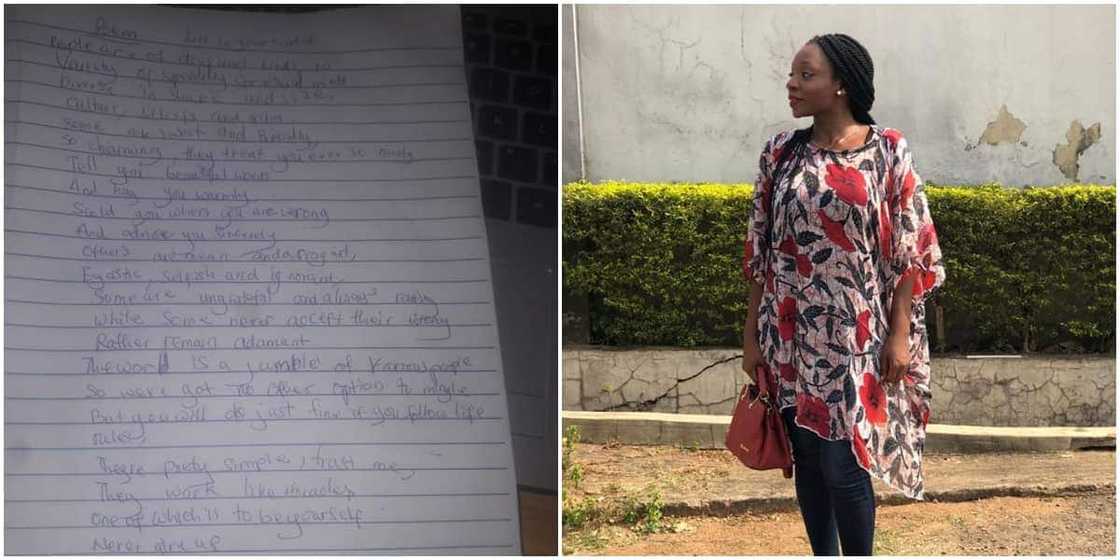 Poem
People are of different kinds
Variety of
Diverse in
Culture, beliefs and
Some are sweet and friendly
So charming they treat you ever so nicely
Tell you beautiful words
And hug you warmly
Scold you when you are wrong
And advise you sincerely
Others are mean and arrogant,
Egoistic, selfish and ignorant,
Some are ungrateful and always
While some never accept their wrong
Rather remain adamant
The world is a jumble of various people
So weve got no other option to
But you will do just fine if you follow life
rules
Theyre pretty simple, trust me,
They work like miracles
One of which is to be yourself
Never give up